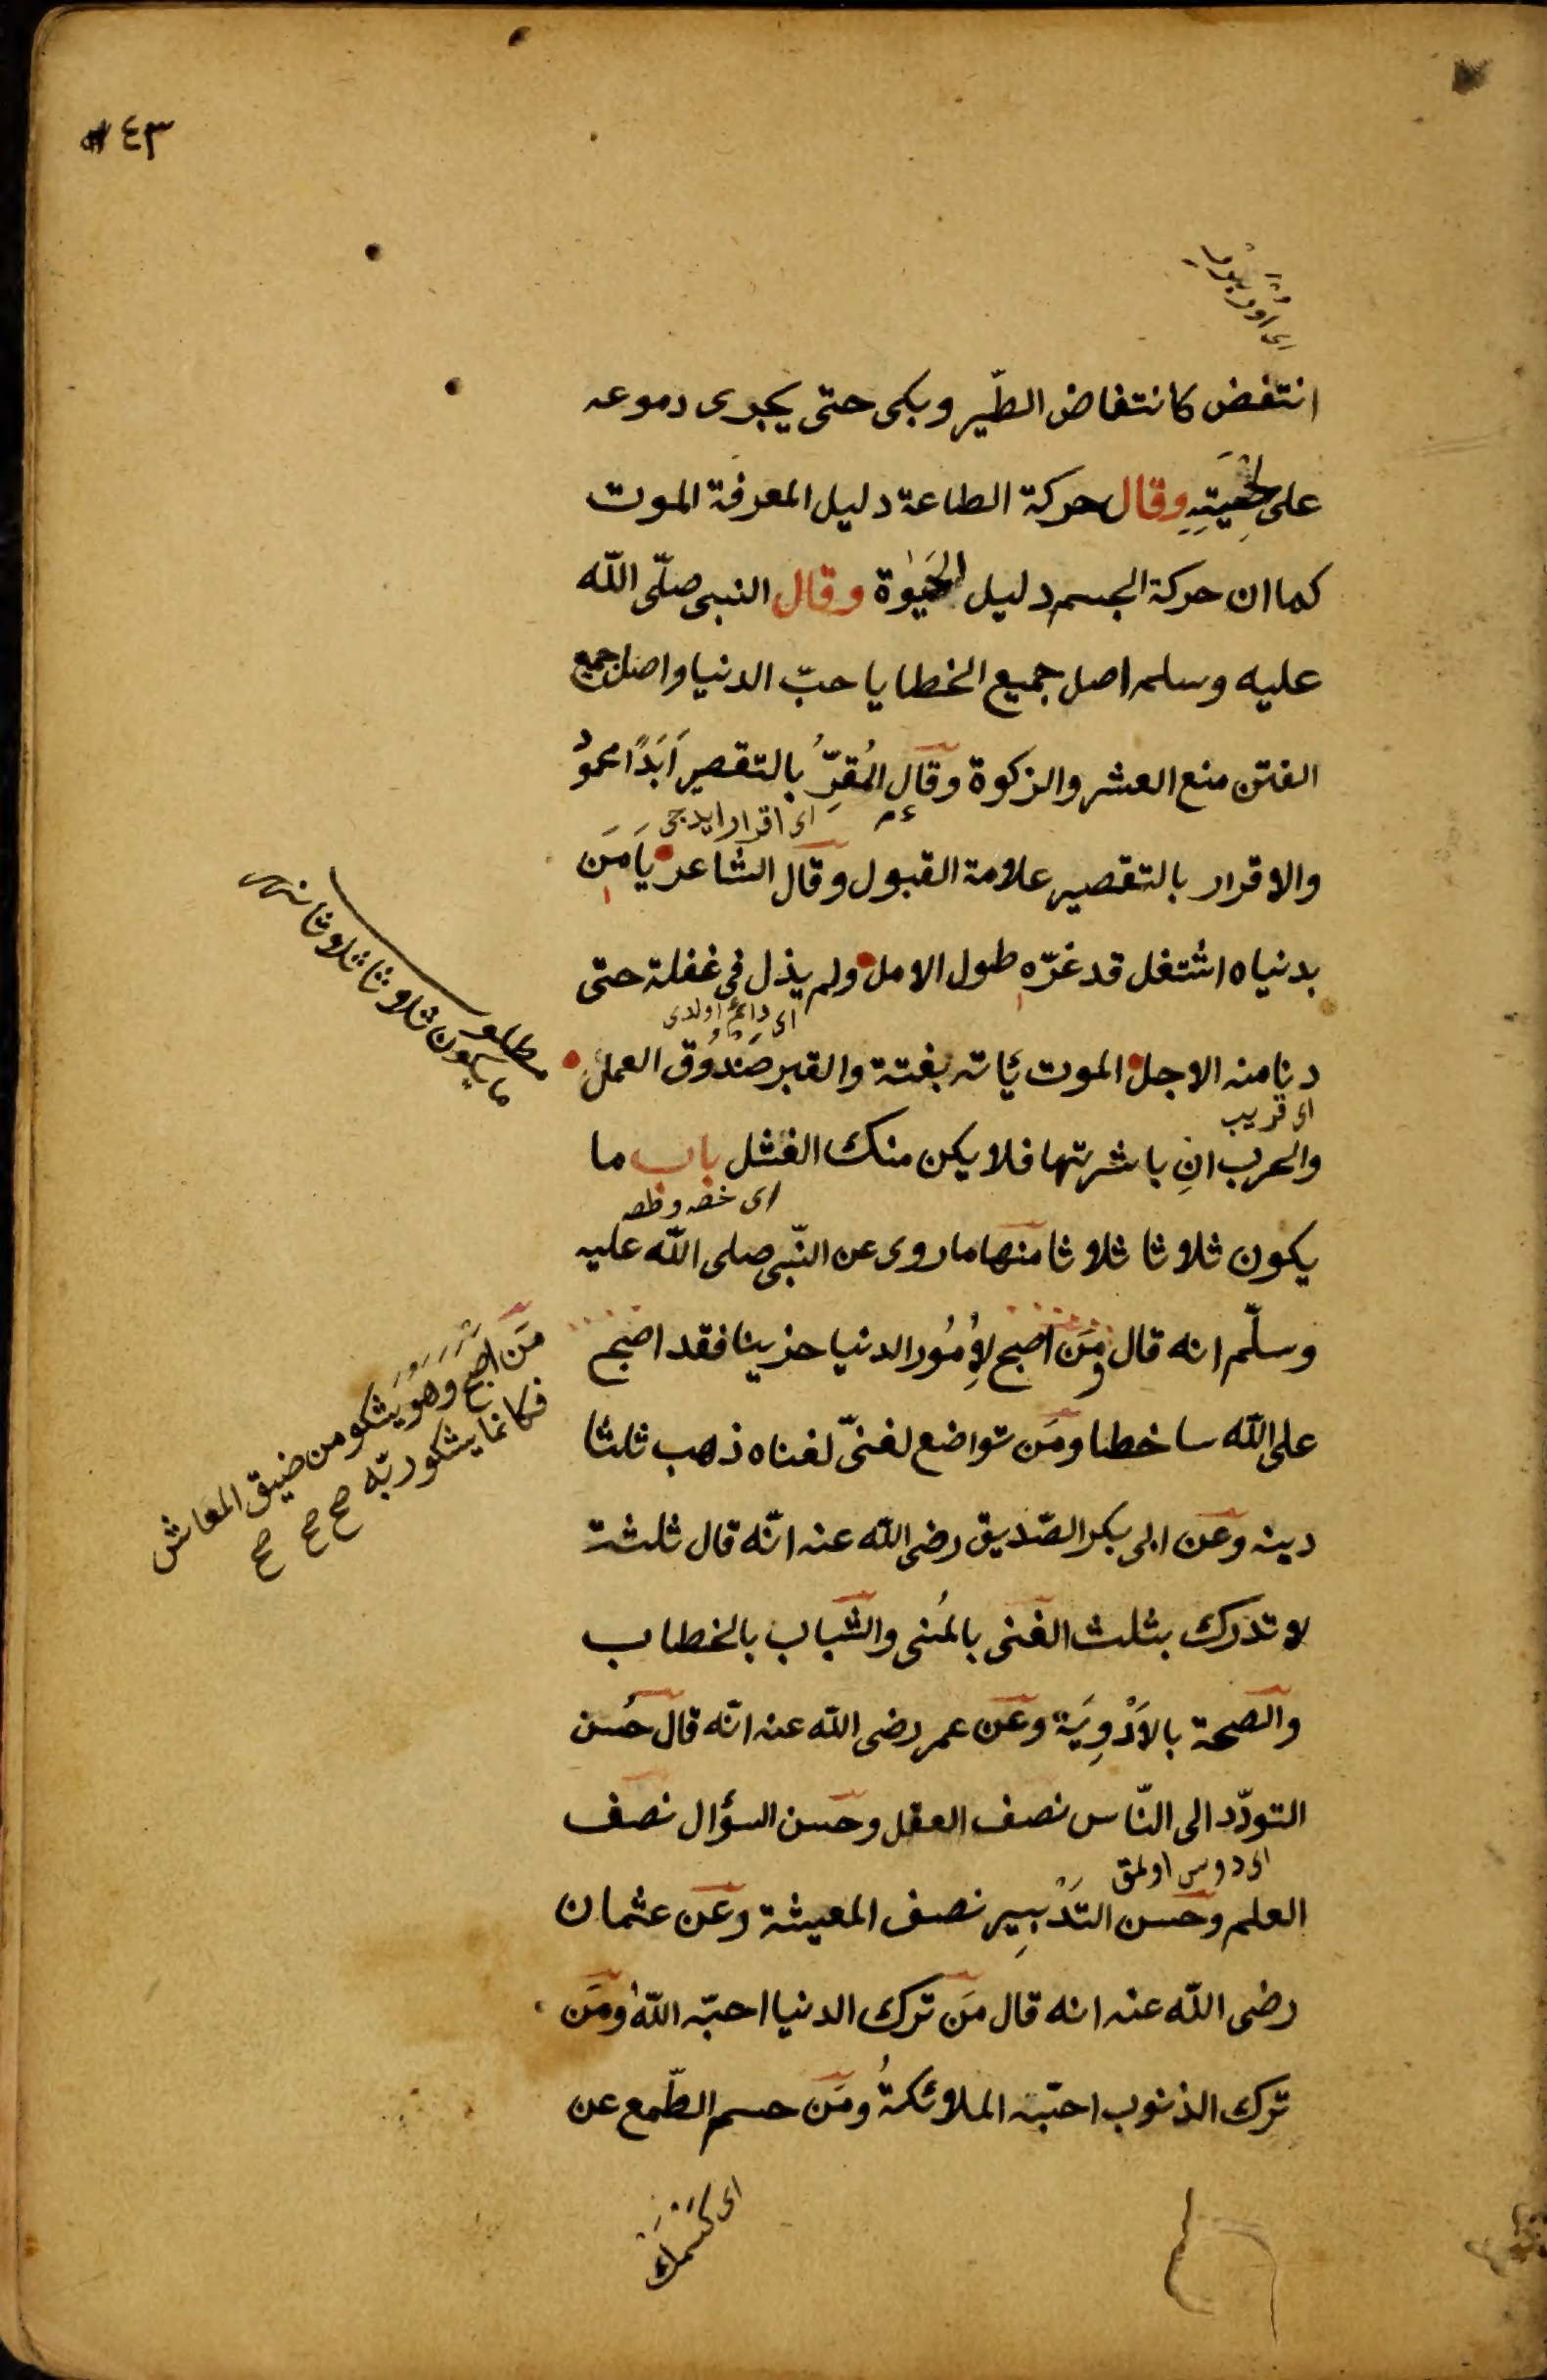 ٤٣
انتفض كانتفاض الطّير وبكى حتى يجرى دموعه
على لحيته وقال حركة الطاعة دليل المعرفة الموت
كما ان حركة الجسم دليل الحيوة وقال النبى صلّى اللّه
عليه وسلم اصل جميع الخطايا حبّ الدنيا واصل جميع
الفتن منع العشر والزكوة وقال المُقِرُّ بالتقصير اَبَدًا محمودٌ
اى اقرار ايديجى
والاقرار بالتقصير علامة القبول وقال الشاعر يَا مَن
بدنياه اشتغل قد غرّه طول الامل ولم يذل فى غفلة حتى
اى دائم اولدى
دنا منه الاجل الموت ئاته بغتة والقبر صَنْدُوق العمل
اى قريب
والحرب انِ باشرتها فلا يكن منك الفشل باب ما
يكون ثلاثا ثلاثا منها ما روى عن النّبى صلى اللّه عليه
وسلّم انه قال مَن اصبح لِاُمُور الدنيا حزينا فقد اصبح
على اللّه ساخطا ومَن تواضع لغنىّ لغناه ذهب ثلثا
دينه وعن ابى بكر الصّديق رضى اللّه عنه انّه قال ثلثة
لا تدرك بثلث الغنى بالمُنى والشّباب بالخطاب
والصحة بالاَدْوِيَة وعن عمر رضى اللّه عنه انّه قال حُسن
التودّد الى النّاس نصف العقل وحسن السؤال نصف
اى دوس اولمق
العلم وحسن التَدْبِير نصف المعيشة وعن عثمان
رضى اللّه عنه انه قال مَن ترك الدنيا احبّه اللّه ومَن
ترك الذنوب احبّه الملائكةُ ومَن حسم الطّمع عن
اى كسمك
ما يكون ثلاثا ثلاثا
مَن اصبح وهو يشكو من ضيق المعاش
فكانما يشكو ربّه صح صح صح